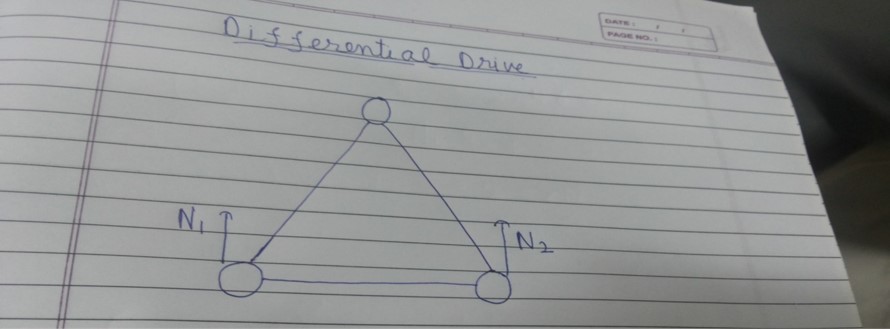 DATE:
PAGE NO.:
Differential Drive
N1
N2